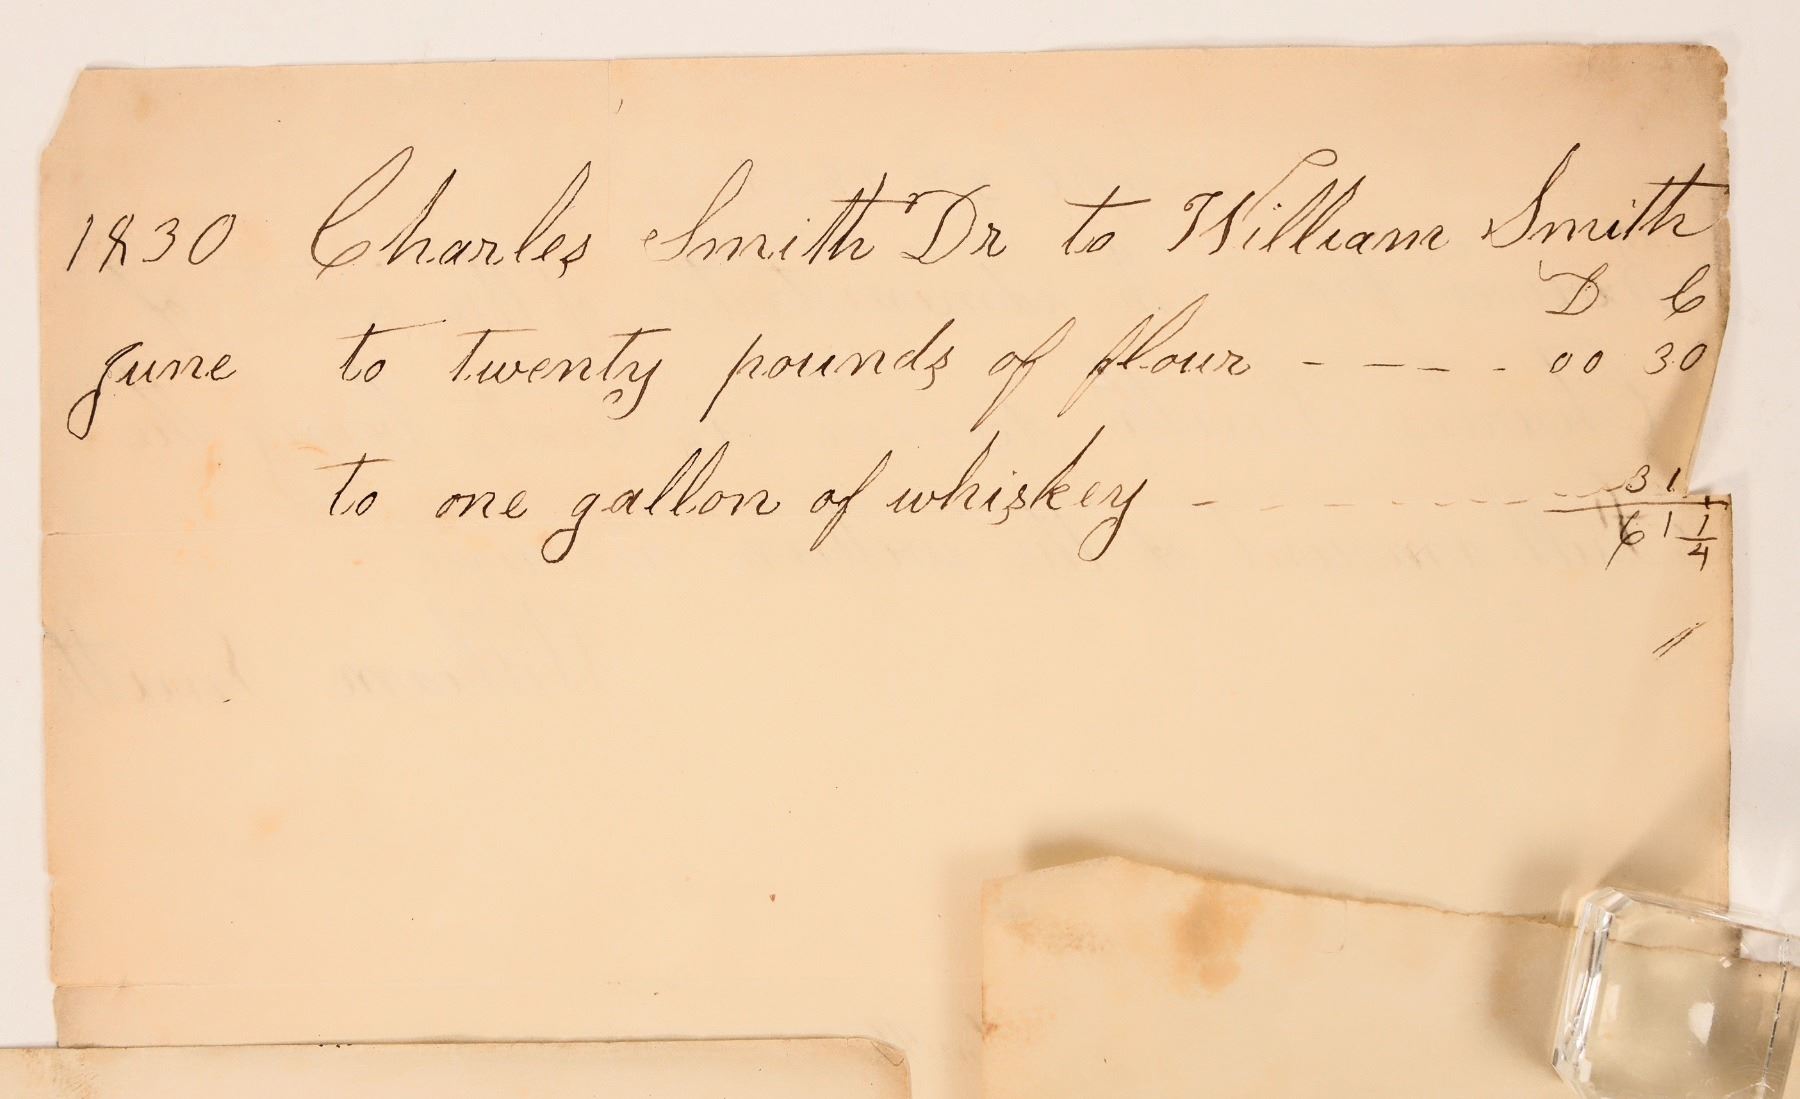 1830 Charles Smith Dr to William Smith
D C
June to twenty pounds of flour - - - - - 00 30
to one gallon of whiskey - - - - - - - - - 31
61 1/4